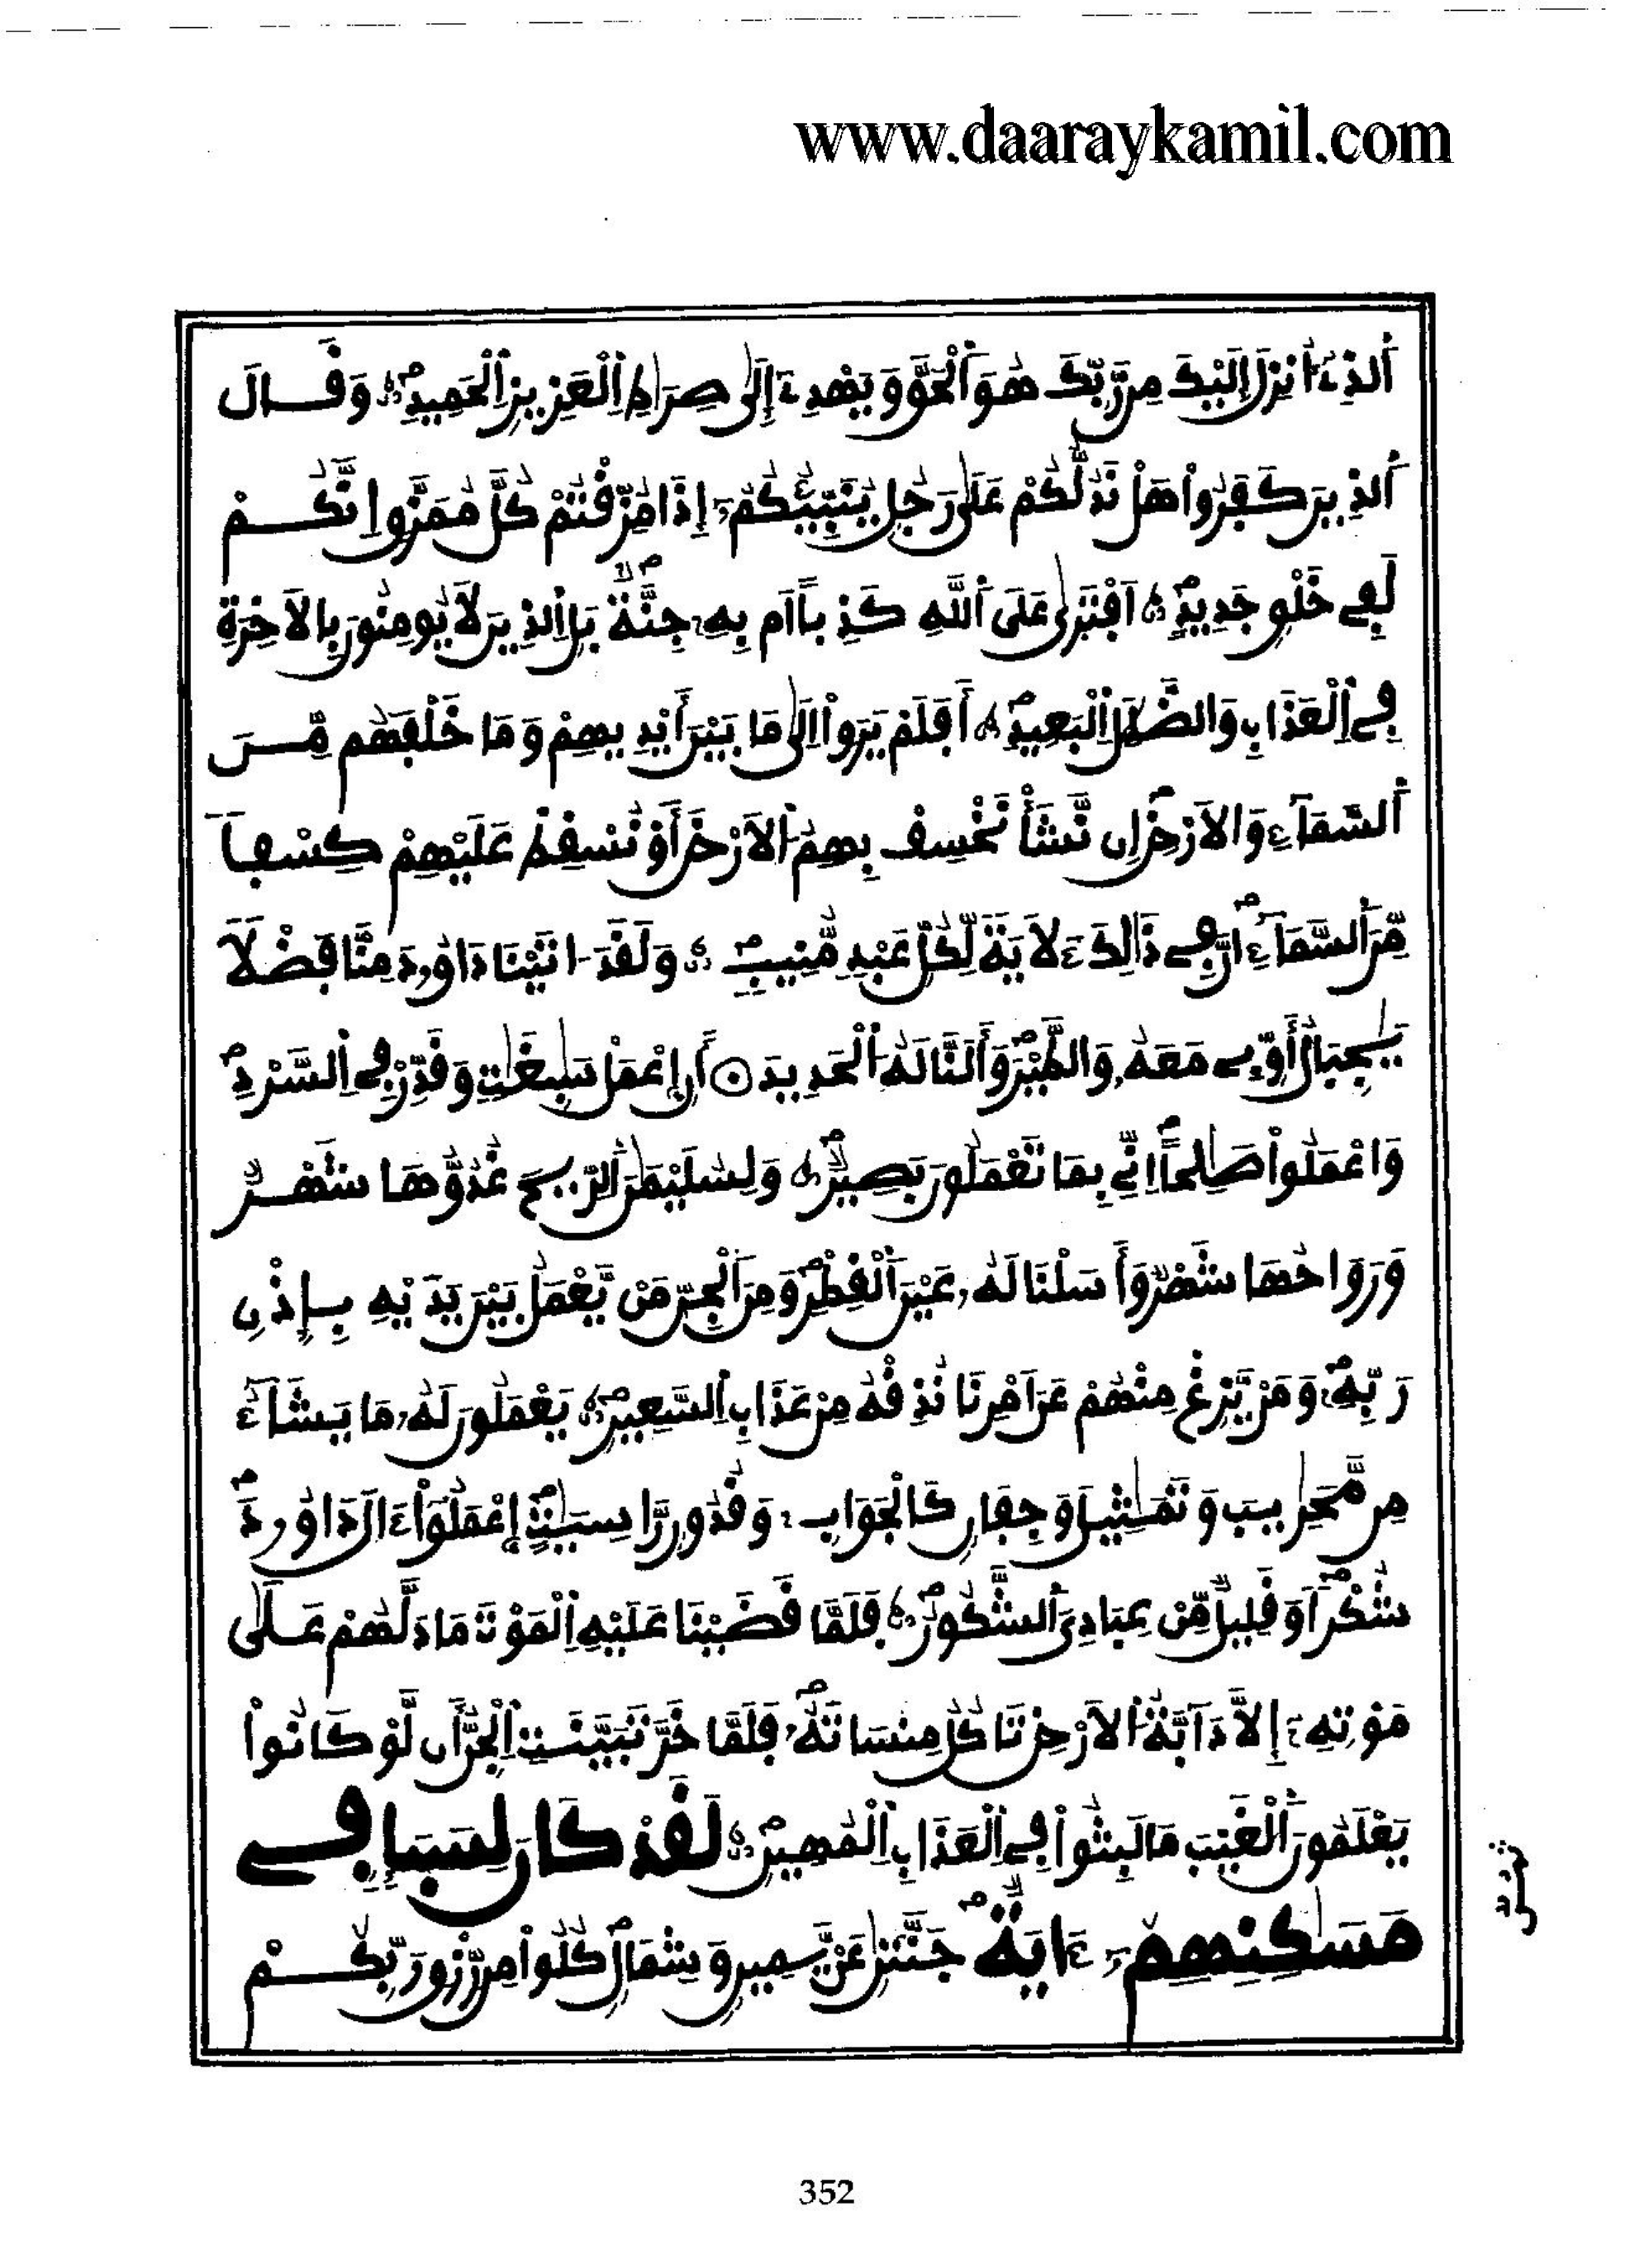 www.daaraykamil.com
اَلذِےٓ أُنزِلَ إِلَيْكَ مِن رَّبِّكَ هُوَ اَلْحَقَّ وَيَهْدِےٓ إِلَىٰ صِرَٰطِ اِلْعَزِيزِ اِلْحَمِيدِ وَقَالَ
اَلذِينَ كَفَرُواْ هَلْ نَدُلُّكُمْ عَلَىٰ رَجُلٍ يُنَبِّئُكُمُۥٓ إِذَا مُزِّقْتُمْ كُلَّ مُمَزَّقٍ اِنَّكُمْ
لَفِے خَلْقٍ جَدِيدٍ اَفْتَرَىٰ عَلَى اَللَّهِ كَذِباً اَم بِهِۦ جِنَّةٌ بَلِ اِلذِينَ لَا يُومِنُونَ بِالَاخِرَةِ
فِے اِلْعَذَابِ وَالضَّلَٰلِ اِلْبَعِيدِ أَفَلَمْ يَرَوِاْ اِلَىٰ مَا بَيْنَ أَيْدِيهِمْ وَمَا خَلْفَهُم مِّنَ
اَلسَّمَآءِ وَالَارْضِ إِن نَّشَأْ نَخْسِفْ بِهِمُ اُلَارْضَ أَوْ نُسْقِطْ عَلَيْهِمْ كِسْفاً
مِّنَ اَلسَّمَآءِ اِنَّ فِے ذَٰلِكَ ءَلَايَةً لِّكُلِّ عَبْدٍ مُّنِيبٍ وَلَقَدَ اتَيْنَا دَاوُۥدَ مِنَّا فَضْلًا
يَٰجِبَالُ أَوِّبِے مَعَهُۥ وَالطَّيْرَ وَأَلَنَّا لَهُ اُلْحَدِيدَ أَنِ اِعْمَلْ سَٰبِغَٰتٍ وَقَدِّرْ فِے اِلسَّرْدِ
وَاعْمَلُواْ صَٰلِحاً اِنِّے بِمَا تَعْمَلُونَ بَصِيرٌ وَلِسُلَيْمَٰنَ اَلرِّيحَ غُدُوُّهَا شَهْرٌ
وَرَوَاحُهَا شَهْرٌ وَأَسَلْنَا لَهُۥ عَيْنَ اَلْقِطْرِ وَمِنَ اَلْجِنِّ مَنْ يَّعْمَلُ بَيْنَ يَدَيْهِ بِإِذْنِ
رَبِّهِۦ وَمَنْ يَّزِغْ مِنْهُمْ عَنَ اَمْرِنَا نُذِقْهُ مِنْ عَذَابِ اِلسَّعِيرِ يَعْمَلُونَ لَهُۥ مَا يَشَآءُ
مِن مَّحَٰرِيبَ وَتَمَٰثِيلَ وَجِفَانٍ كَالْجَوَابِ وَقُدُورٍ رَّاسِيَٰتٍ اِعْمَلُوٓاْ ءَالَ دَاوُۥدَ
شُكْراً وَقَلِيلٌ مِّنْ عِبَادِيَ اَلشَّكُورُ فَلَمَّا قَضَيْنَا عَلَيْهِ اِلْمَوْتَ مَا دَلَّهُمْ عَلَىٰ
مَوْتِهِۦٓ إِلَّا دَآبَّةُ اُلَارْضِ تَاكُلُ مِنسَاتَهُۥ فَلَمَّا خَرَّ تَبَيَّنَتِ اِلْجِنُّ أَن لَّوْ كَانُواْ
يَعْلَمُونَ اَلْغَيْبَ مَا لَبِثُواْ فِے اِلْعَذَابِ اِلْمُهِينِ لَقَدْ كَانَ لِسَبَإٍ فِے
مَسَٰكِنِهِمُۥٓ ءَايَةٌ جَنَّتَٰنِ عَنْ يَّمِينٍ وَشِمَالٍ كُلُواْ مِن رِّزْقِ رَبِّكُمْ
352